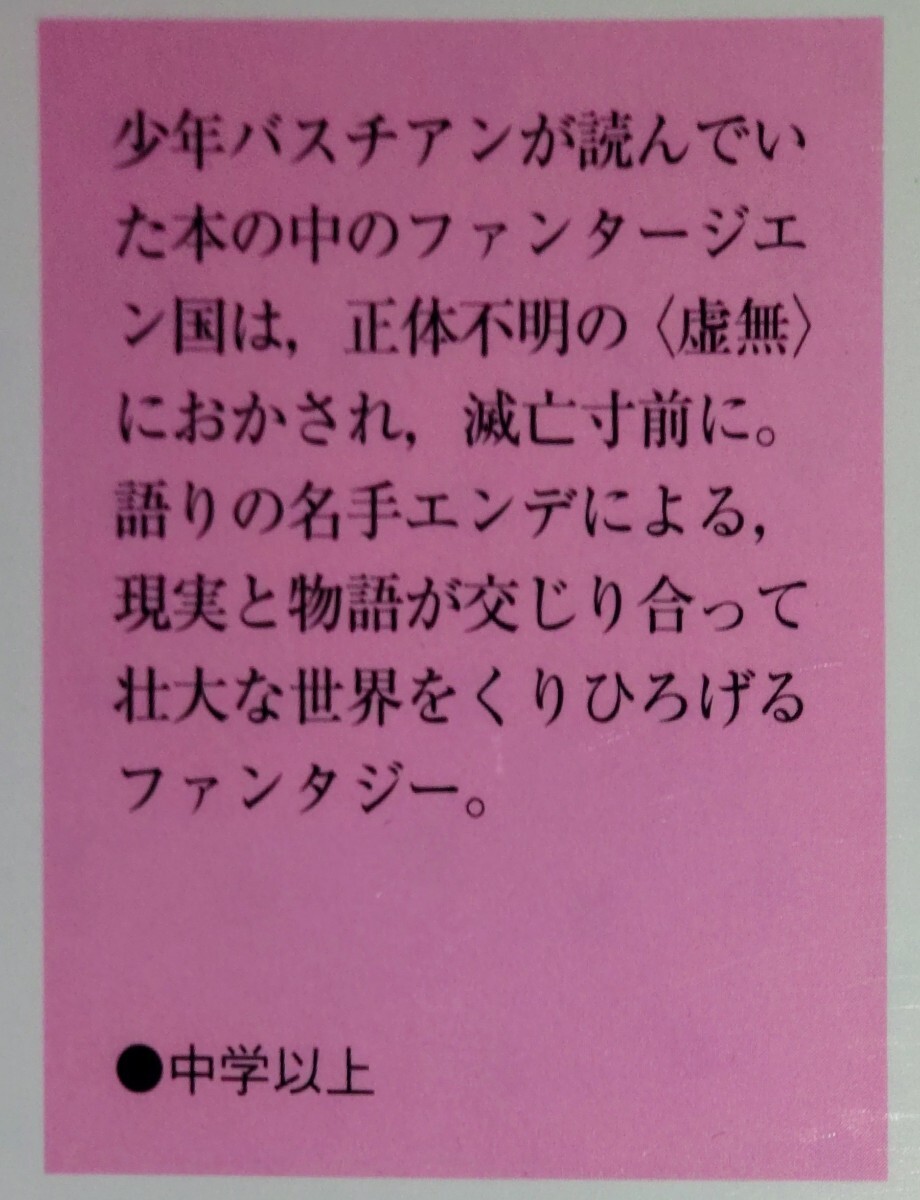 少年バスチアンが読んでい
た本の中のファンタージエ
ン国は，正体不明の〈虚無〉
におかされ，滅亡寸前に。
語りの名手エンデによる，
現実と物語が交じり合って
壮大な世界をくりひろげる
ファンタジー。
●中学以上